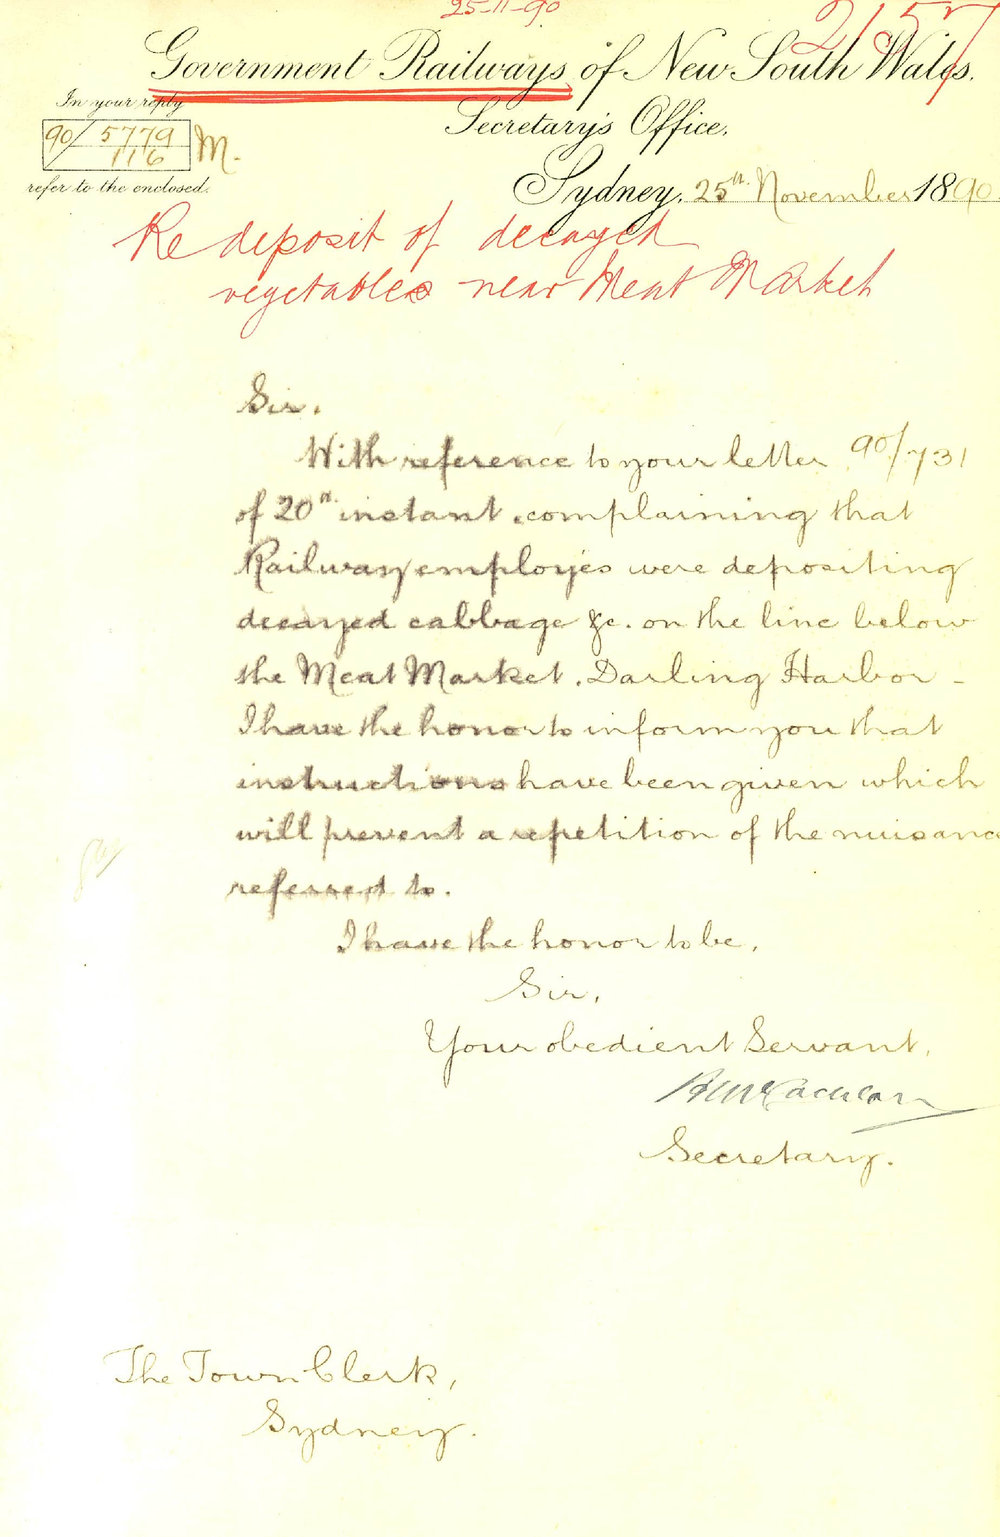 25-11-90
2157
Government Railways of New South Wales.
In your reply
90/5779
116 M.
refer to the enclosed.
Secretary's Office.
Sydney, 25th November 1890.
Re deposit of decayed
vegetables near Meat Market
Sir,
With reference to your letter 90/731
of 20th instant, complaining that
Railway employés were depositing
decayed cabbage &c. on the line below
the Meat Market, Darling Harbor -
I have the honor to inform you that
instructions have been given which
will prevent a repetition of the nuisanc
referred to.
I have the honor to be,
Sir,
Your obedient Servant,
H McLachlan
Secretary.
The Town Clerk,
Sydney.